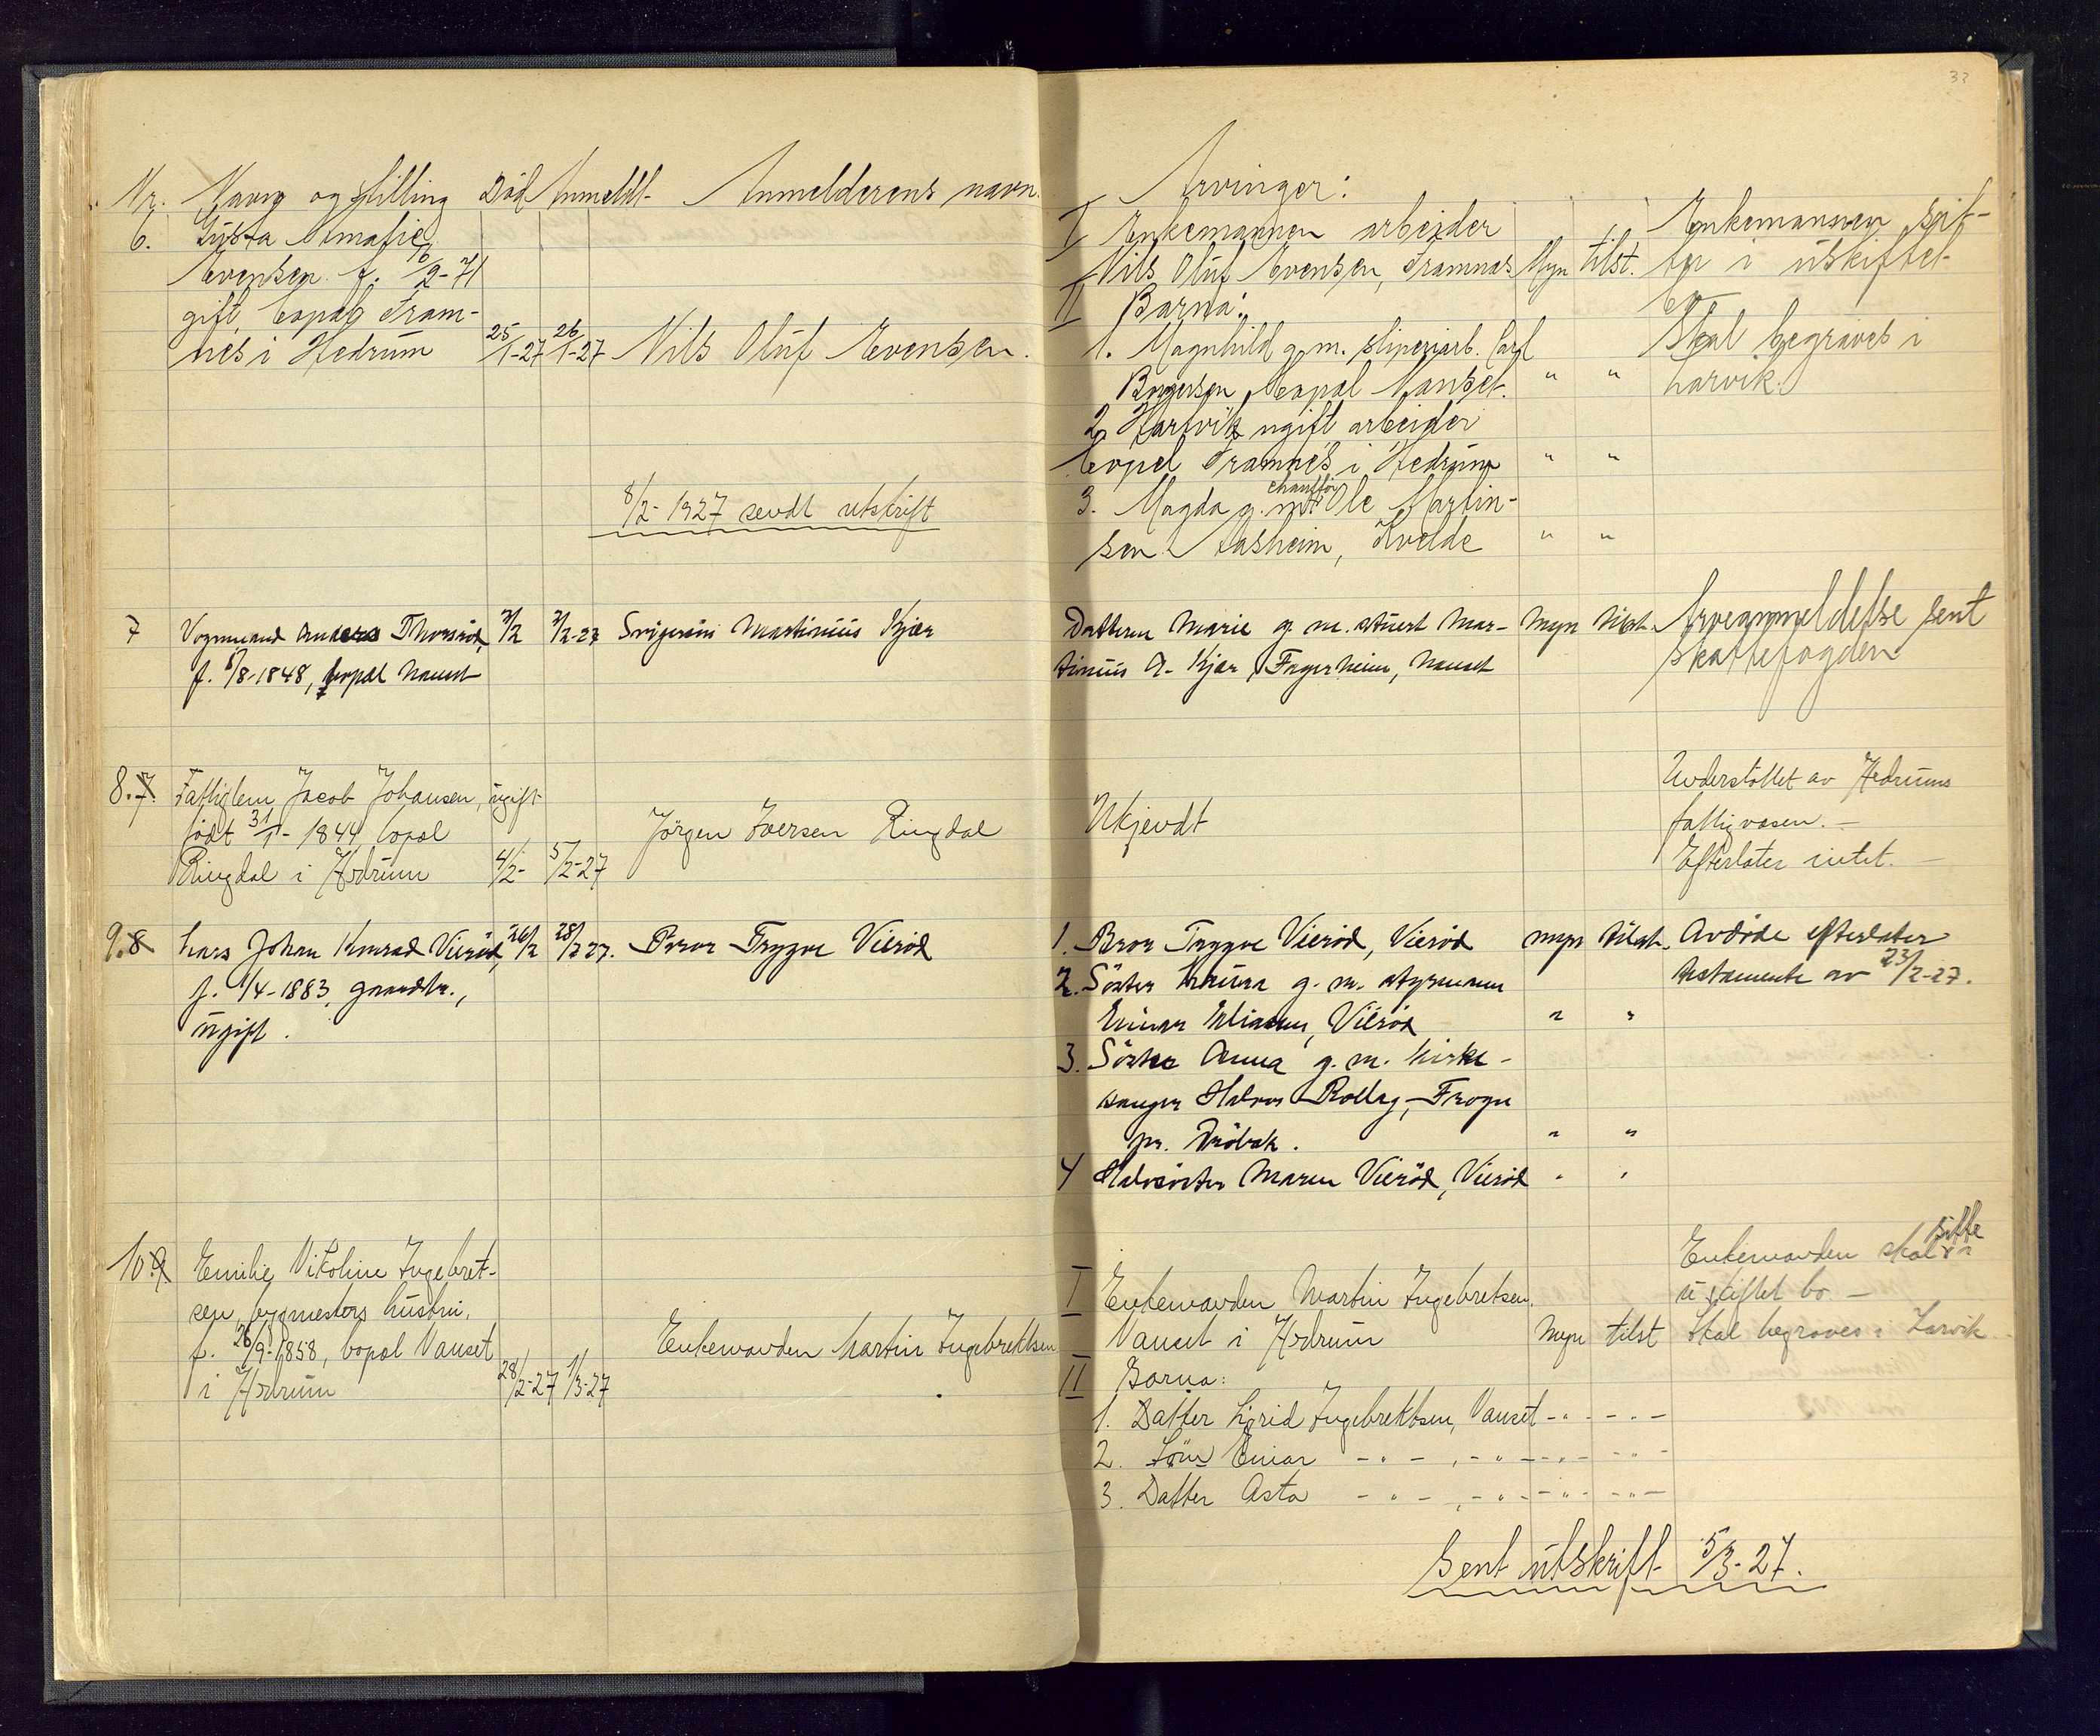 33
Nr. Navn og stilling Död Anmeldt Anmelderens navn.
6. Gusta Amalie
Evensen f. 16/9-71
gift, bopæl Fram-
nes i Hedrum 25/1-27 26/1-27 Nils Oluf Evensen.
8/2-1927 sendt utskrift
7 Vognmand Anders Thorsrød, 2/2 2/2-27 Svigersön Martinius Kjær
f. 5/8-1848, bopæl Nanset
8. 7. Fattiglem Jacob Johansen, ugift
födt 31/1-1844, bopæl
Jörgen Iversen Ringdal
Ringdal i Hedrum 4/2- 5/2-27
9. 8 Lars Johan Konrad Vierød, 26/2 28/2 27. Bror Trygve Vierød
f. 1/4-1883, gaardbr.,
ugift.
10. 9. Emilie Nikoline Ingebret-
sen, bygmesters hustru,
f. 26/9-1858, bopæl Nanset Enkemanden Martin Ingebrektsen
i Hedrum 28/2-27 1/3-27
Arvinger:
I Enkemannen arbeider Enkemannen sit-
Nils Oluf Evensen, Framnes Myn tilst. ter i uskiftet
II Barna: bo
1. Magnhild g. m. sliperiarb. Carl Skal begraves i
bopæl Nanset. " " Larvik.
2. Hartvik ugift arbeider
bopæl Framnes i Hedrum " "
3. Magda g. m. chaufför Ole Martin-
sen Aasheim, Kvelde " "
Datteren Marie g. m. stuert Mar- Myn tilst. Arveanmeldelse sent
tinius A. Kjær, Fagerheim, Nanset skattefogden
Understöttet av Hedrums
Ukjendt fattigvæsen.
Efterlater intet.
1. Bror Trygve Vierød, Vierød myn tilst. Avdöde efterlater
2. Söster Laura g. m. styrmann testamente av 23/2-27.
Einar Eliassen, Vierød " "
3. Söster Anna g. m. kirke-
sanger Halvor Rollag, Frogn
pr. Dröbak. " "
4 Halvsöster Maren Vierød, Vierød " "
Enkemanden skal sitte i
I Enkemanden Martin Ingebretsen, uskiftet bo –
Nanset i Hedrum Myn tilst Skal begraves i Larvik
II Barna:
1. Datter Sigrid Ingebrektsen, Nanset - " - - " -
2. Sön Einar - " - , - " - - " - - " -
3. Datter Asta - " - , - " - - " - - " -
Sent utskrift 5/3-27.